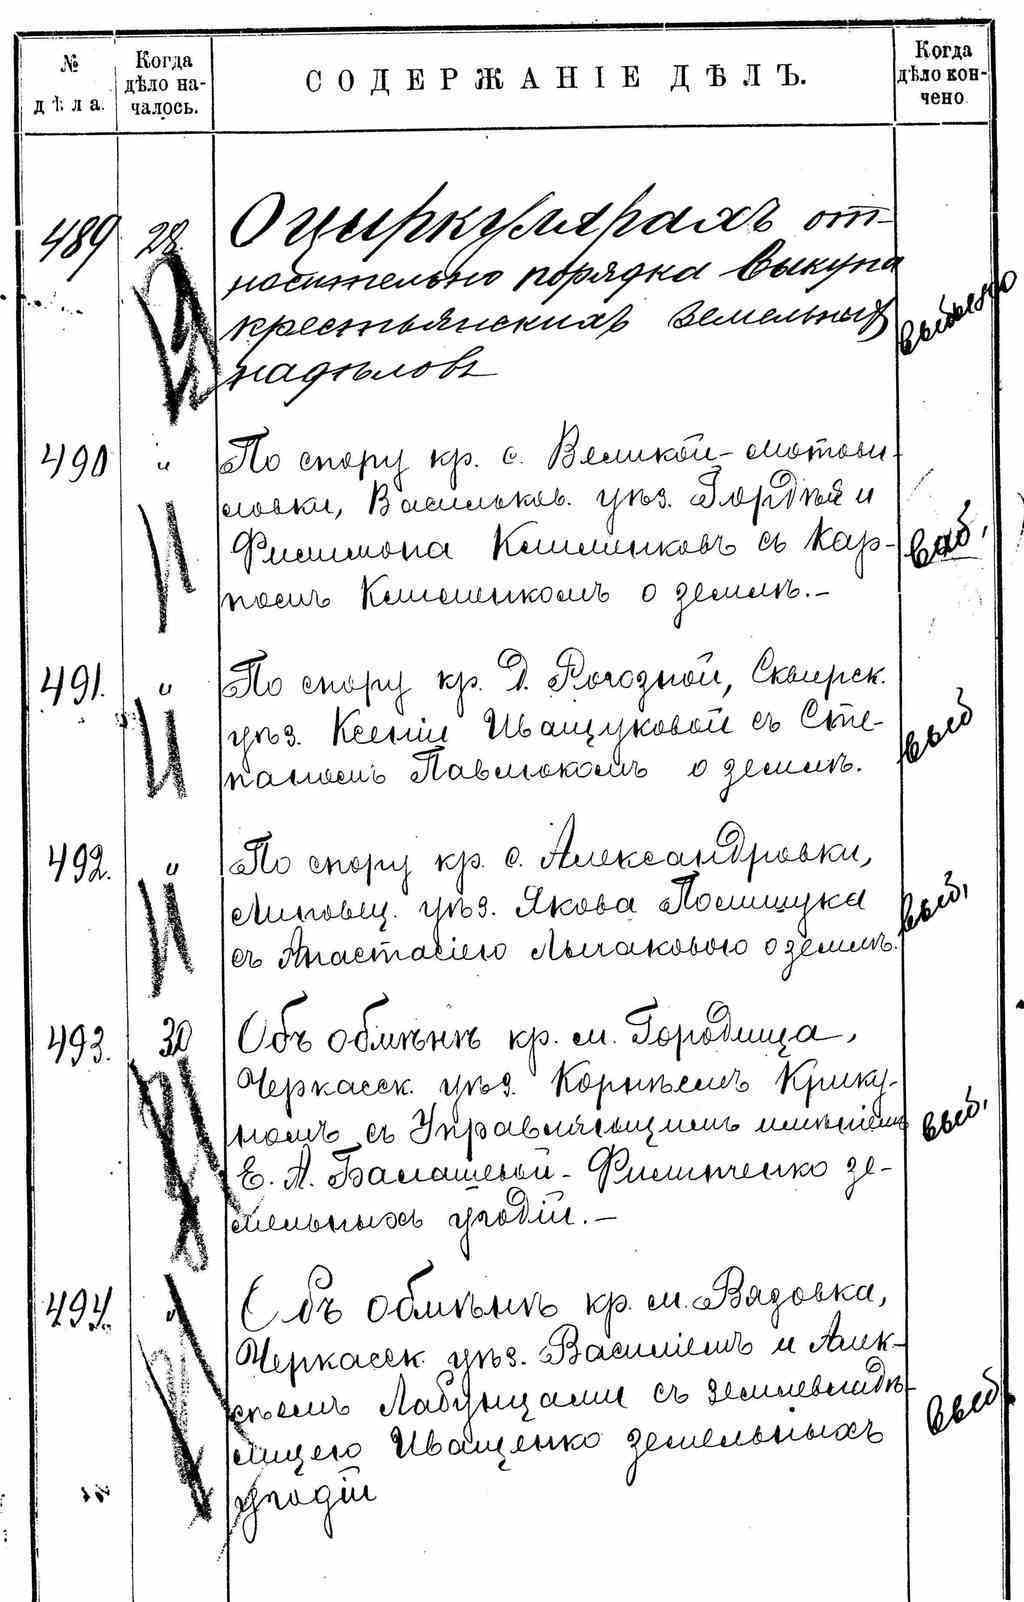 № дѣла.
Когда дѣло началось.
СОДЕРЖАНІЕ ДѢЛЪ.
Когда дѣло кончено
489 28 О циркулярахъ от-
носительно порядка выкупа
крестьянскихъ земельныхъ выбыло
надѣловъ
490 " По спору кр. с. Великой-Мотови-
ловки, Васильков. уѣз. Гордѣя и
Филимона Клименковъ съ Кар- выб.
помъ Клименкомъ о землѣ.-
491. " По спору кр. д. Рогозной, Сквирск.
уѣз. Ксеніи Иващуковой съ Сте- выб
паномъ Павлюкомъ о землѣ.
492. " По спору кр. с. Александровки,
Липовец. уѣз. Якова Полищука выб.
съ Анастасіею Лычаковою о землѣ.
493. 30 Объ обмѣнѣ кр. м. Городища,
Черкасск. уѣз. Корнѣемъ Крику-
номъ съ Управляющимъ имѣніемъ выб.
Е. А. Балашевой - Филипченко зе-
мельныхъ угодій.-
494. " Объ обмѣнѣ кр. м. Вязовка,
Черкасск. уѣз. Василіемъ и Алек-
сѣемъ Лабунцами съ землевладѣ- выб.
лицею Иващенко земельныхъ
угодій